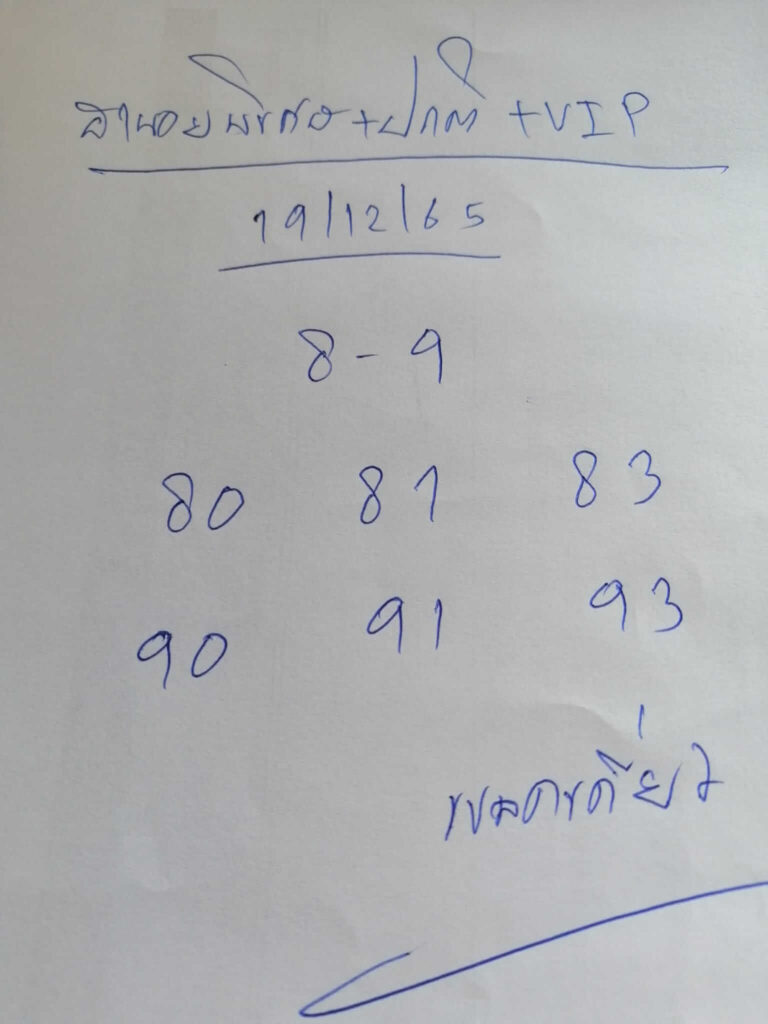 ฮานอยพิเศษ+ปกติ +VIP
19/12/65
8-9
80 81 83
90 91 93
แปดเดี่ยว